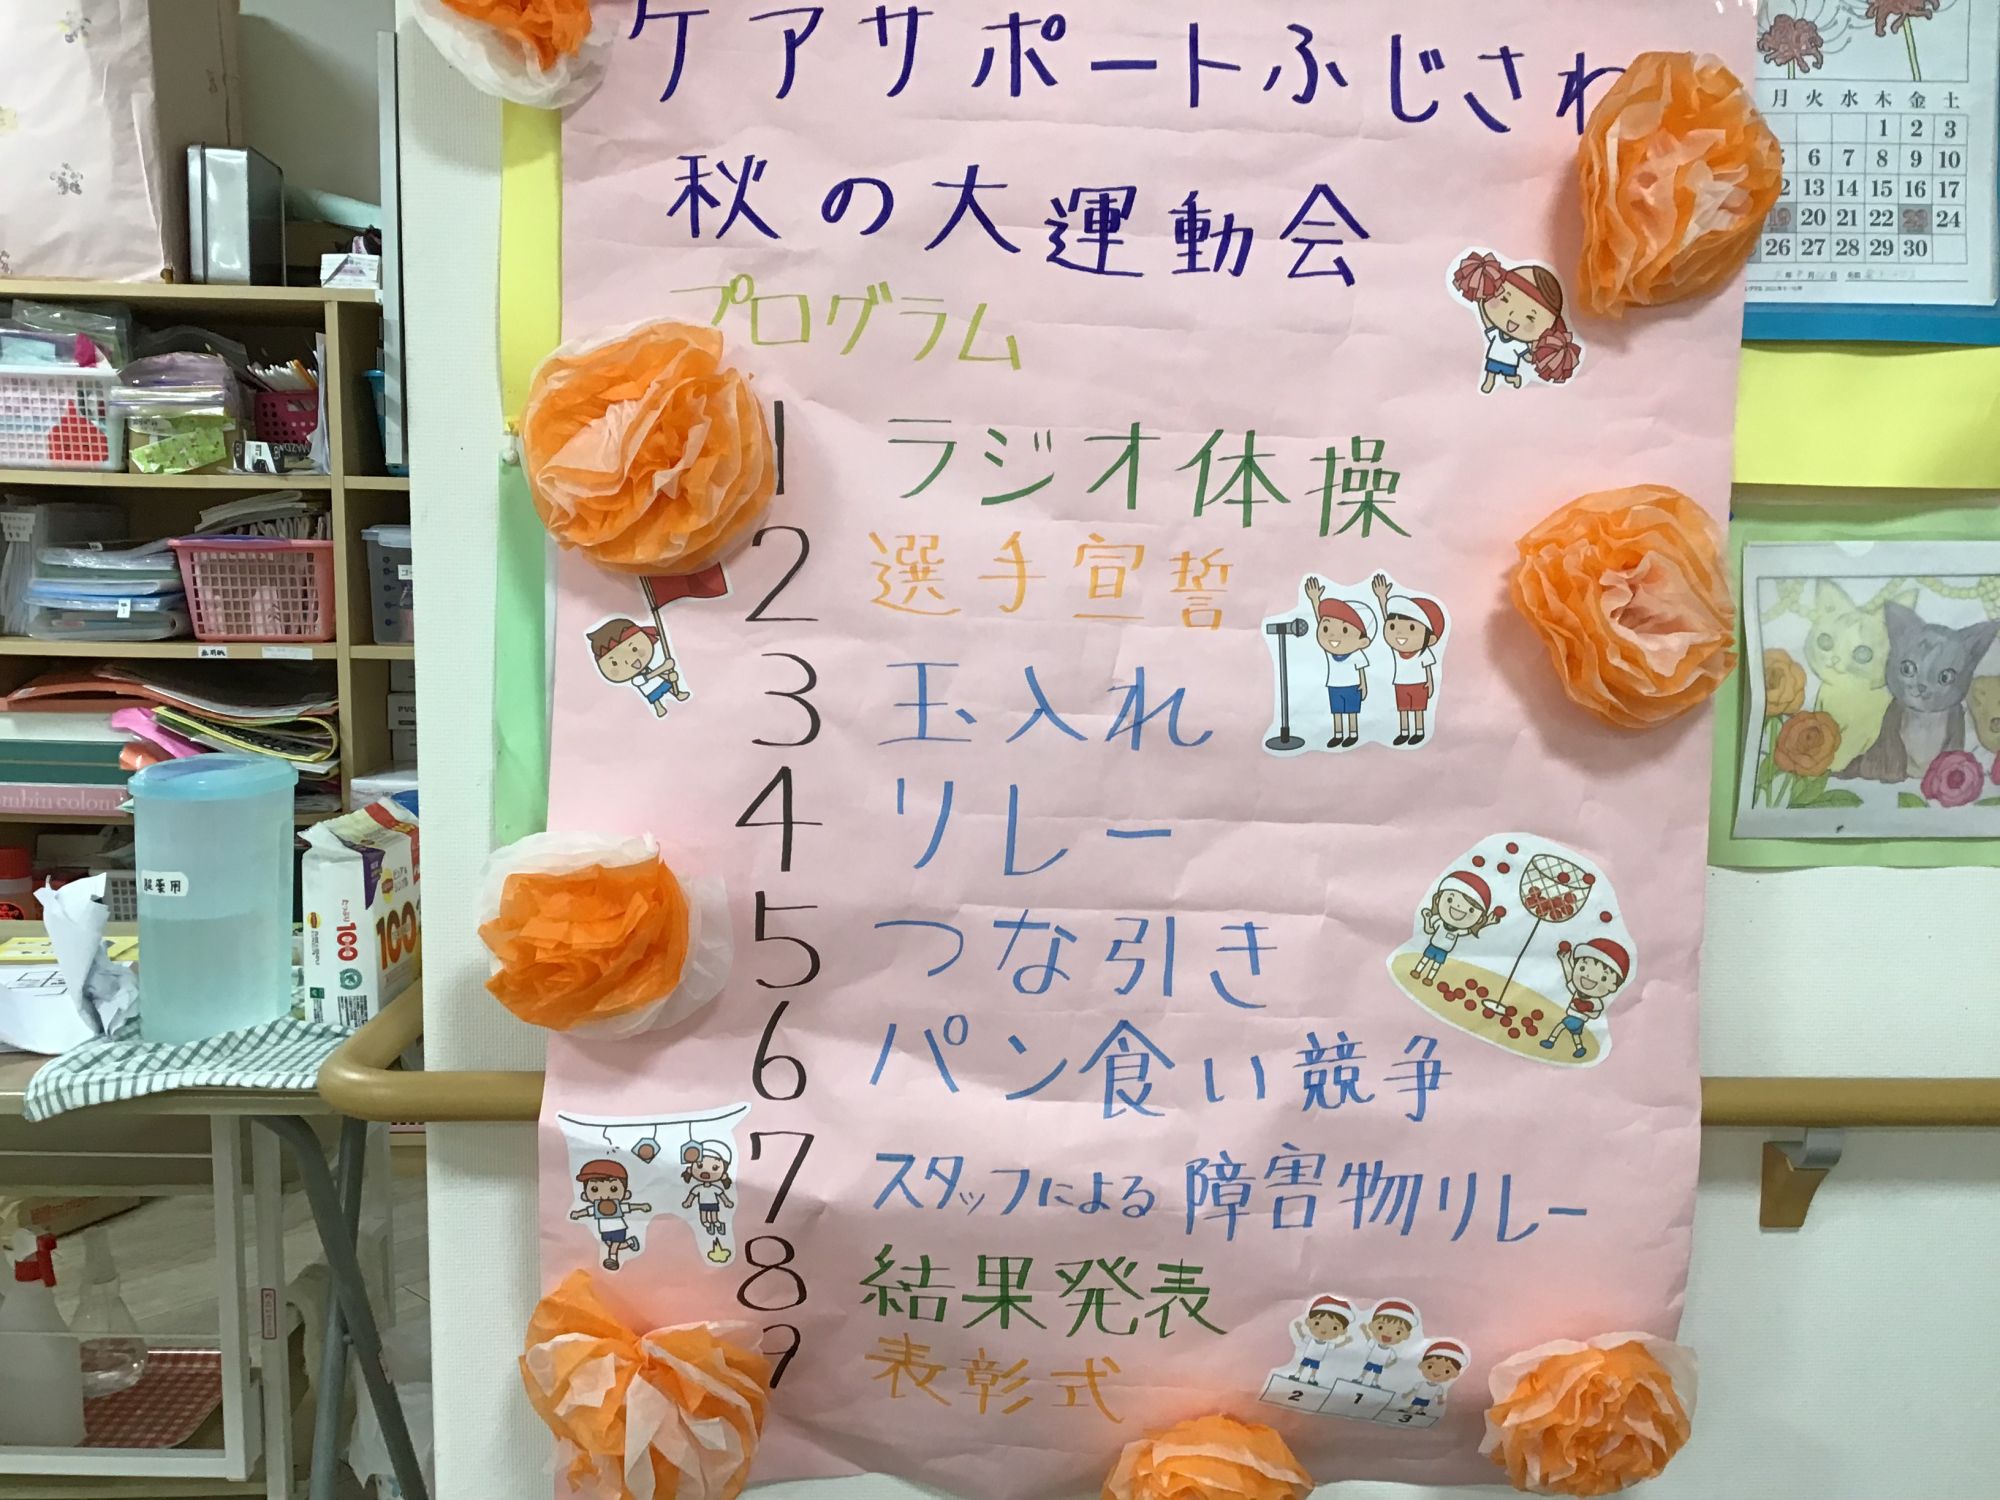 ケアサポートふじさわ
秋の大運動会
プログラム
1 ラジオ体操
2 選手宣誓
3 玉入れ
4 リレー
5 つな引き
6 パン食い競争
7 スタッフによる障害物リレー
8 結果発表
9 表彰式
2 1 3
月 火 水 木 金 土
1 2 3
6 7 8 9 10
13 14 15 16 17
19 20 21 22 23 24
26 27 28 29 30
服薬用
100
100